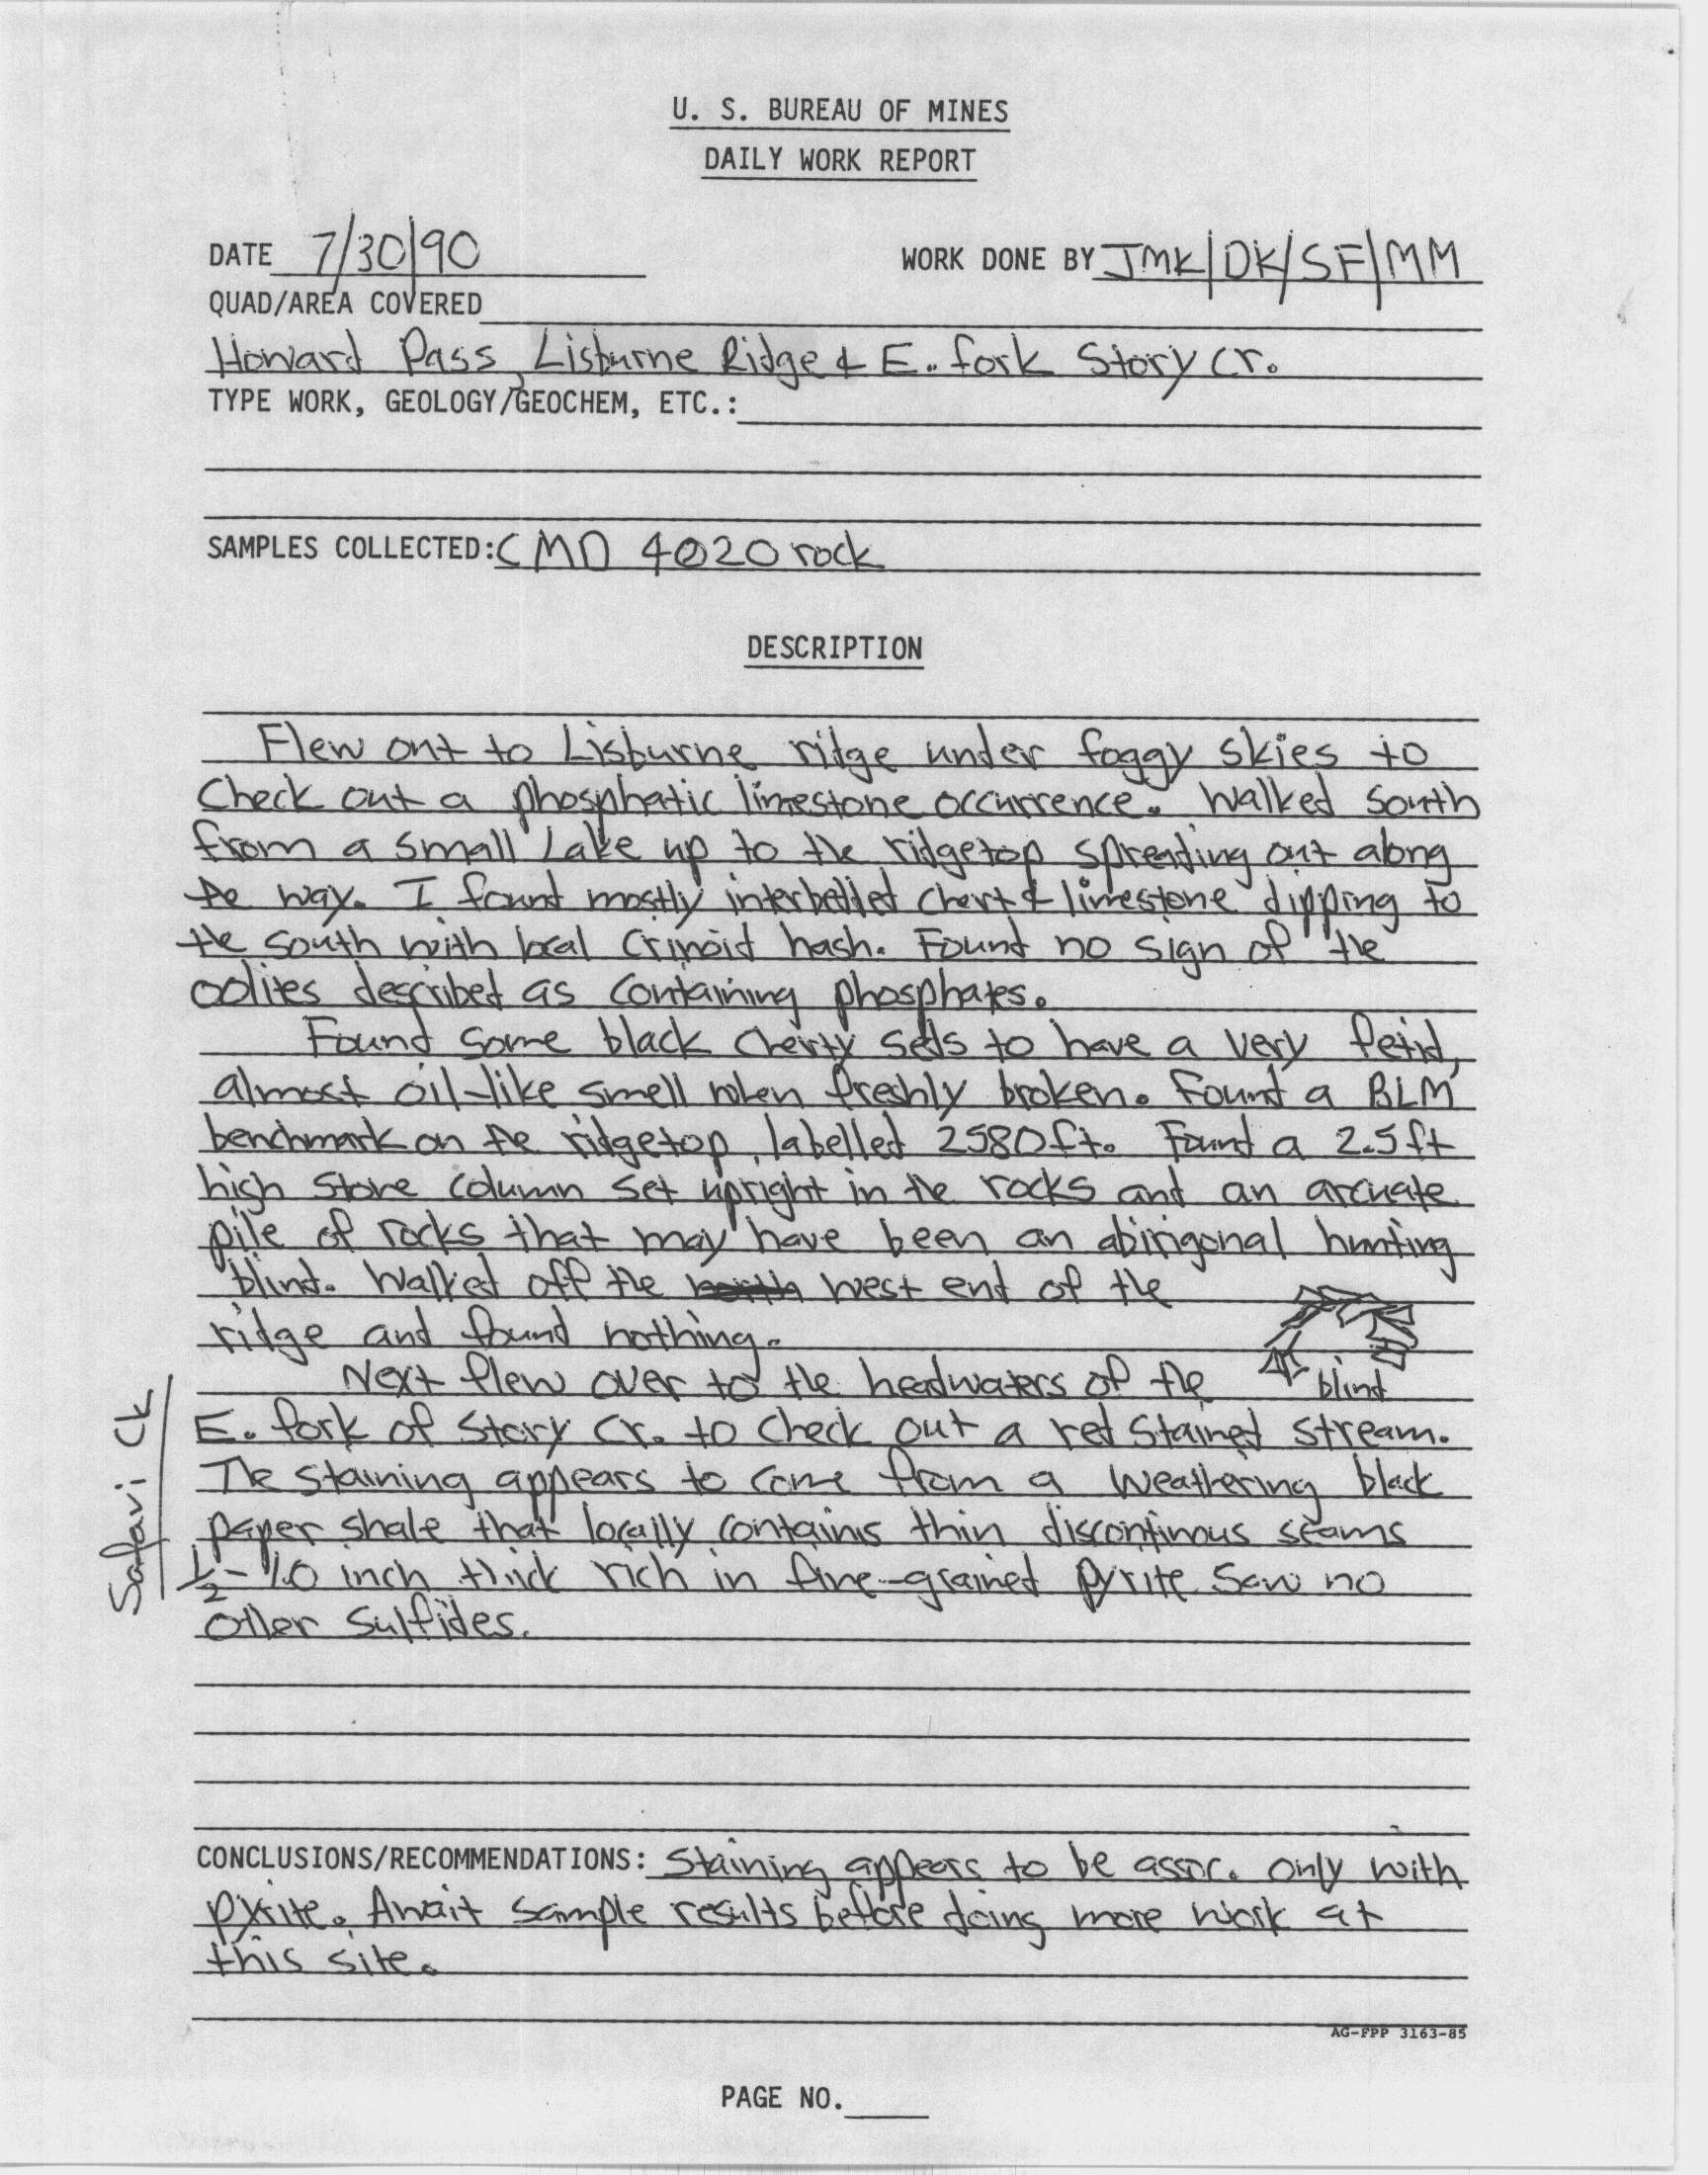 U. S. BUREAU OF MINES
DAILY WORK REPORT
DATE 7/30/90
WORK DONE BY JMK/DK/SF/MM
QUAD/AREA COVERED
Howard Pass, Lisburne Ridge & E. fork Story Cr.
TYPE WORK, GEOLOGY/GEOCHEM, ETC.:
SAMPLES COLLECTED: CMD 4020 rock
DESCRIPTION
Flew out to Lisburne ridge under foggy skies to
Check out a phosphatic limestone occurrence. Walked South
from a small Lake up to the ridgetop spreading out along
the way. I found mostly interbedded chert & limestone dipping to
the south with local Crinoid hash. Found no sign of the
oolites described as containing phosphates.
Found some black Cherty seds to have a very fetid,
almost oil-like smell when freshly broken. Found a BLM
benchmark on the ridgetop, labelled 2580ft. Found a 2.5ft
high stone column set upright in the rocks and an arcuate
pile of rocks that may have been an abirigonal hunting
blind. Walked off the north west end of the
ridge and found nothing.
Next flew over to the headwaters of the
blind
E. fork of Story Cr. to check out a red stained stream.
The staining appears to come from a weathering black
paper shale that locally contains thin discontinous seams
1/2 - 1.0 inch thick rich in fine-grained pyrite. Saw no
other sulfides.
Safari Ck
CONCLUSIONS/RECOMMENDATIONS: Staining appears to be assoc. only with
pyrite. Await sample results before doing more work at
this site.
AG-FPP 3163-85
PAGE NO.